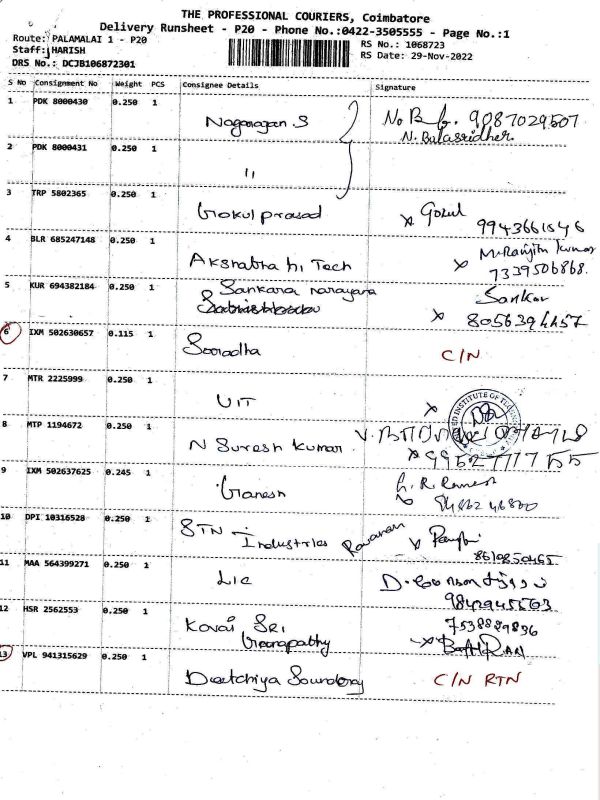 THE PROFESSIONAL COURIERS, Coimbatore
Delivery Runsheet - P20 - Phone No.:0422-3505555 - Page No.:1
Route: PALAMALAI 1 - P20
Staff: HARISH
DRS No.: DCJB106872301
RS No.: 1068723
RS Date: 29-Nov-2022
S No Consignment No Weight PCS Consignee Details Signature
1 PDK 8000430 0.250 1 Nagarajan.S 9087029507
N. Balassidher
2 PDK 8000431 0.250 1 "
3 TRP 5802365 0.250 1 Gokul prasad x Gokul
9943661546
4 BLR 685247148 0.250 1 Akshatha hi Tech x M.Ranjith kumar
7339506868.
5 KUR 694382184 0.250 1 Sankara narayana Sankar
x 8056394457
6 IXM 502630657 0.115 1 Sooradha C/N
7 MTR 2225999 0.250 1 UIT x
8 MTP 1194672 0.250 1 N Suresh kumar
x 9952777755
9 IXM 502637625 0.245 1 Ganesh G.R. Ramesh
10 DPI 10316528 0.250 1 STN Industries x
8610850465
11 MAA 564399271 0.250 1 Lic
9842945563
12 HSR 2562553 0.250 1 Kovai SRI Ganapathy
7538829836
13 VPL 941315629 0.250 1 C/N RTN